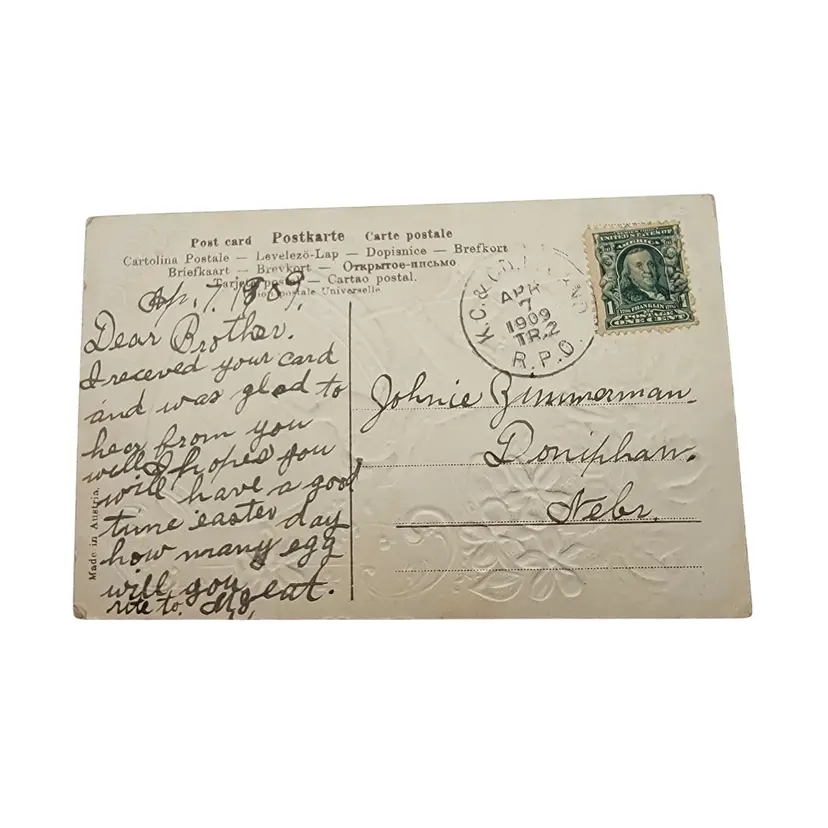 Post card Postkarte Carte postale
Cartolina Postale — Levelező-Lap — Dopisnice — Brefkort
Briefkaart — Brevkort — Открытое-письмо
Tarjeta postal — Cartao postal.
Union postale Universelle
Ap. 7. 1909.
Dear Brother.
I receved your card
and was glad to
hear from you
will I hopes you
will have a good
time easter day
how many egg
will you eat.
rite to.
Made in Austria.
K.C. &
APR
7
1909
TR.2
R.P.O.
UNITED STATES OF
AMERICA
1 FRANKLIN 1
POSTAGE
ONE CENT
Johnie Zimmerman.
Doniphan.
Nebr.